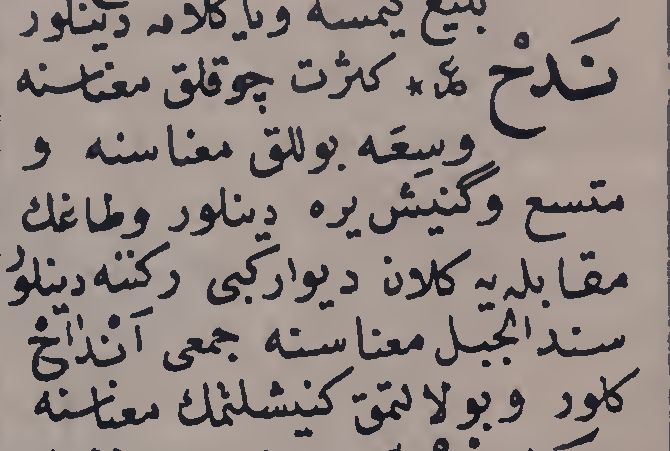 بليغ كيمسه ويا كلامه دينلور
نَدْحْ * كثرت چوقلق معناسنه
وسعَه بوللق معناسنه و
متسع وگنيش يره دينلور وطاغك
مقابله يه كلان ديوار كبى ركننه دينلور
سند الجبل معناسنه جمعى اَنْداحْ
كلور وبولالتمق كنيشلتمك معناسنه